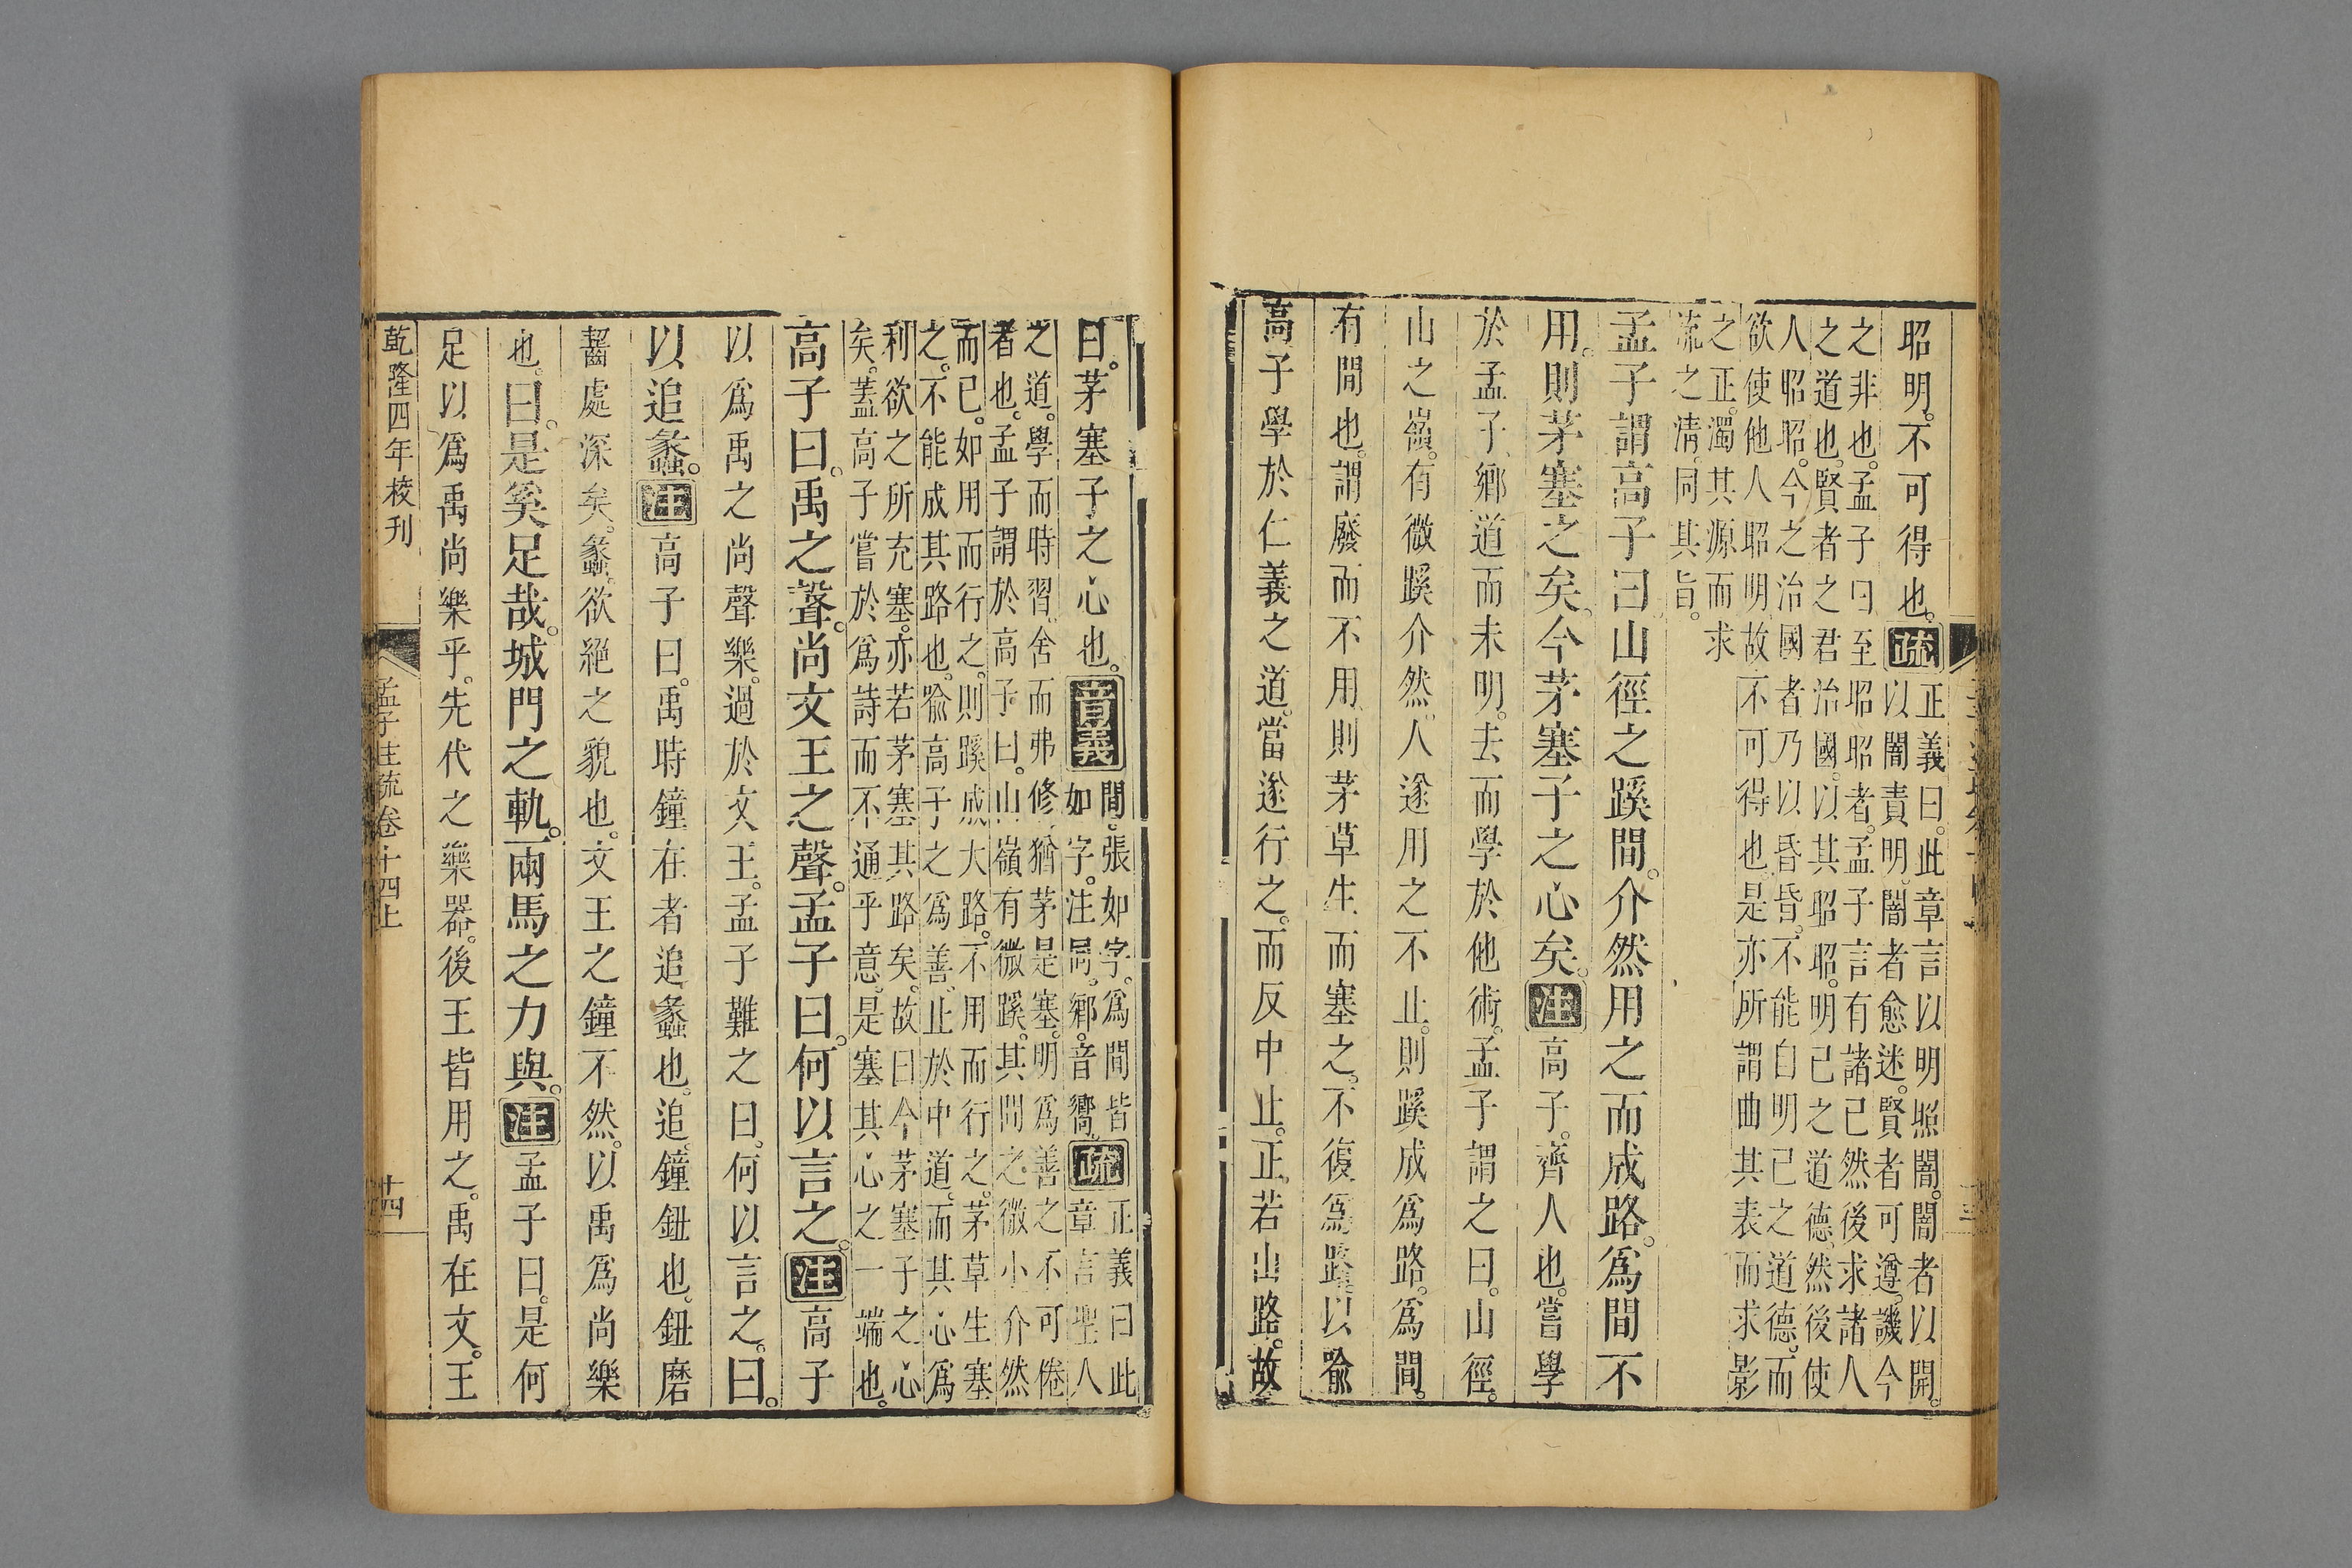 昭明。不可得也。疏正義曰。此章言以明照闇。闇者以開。
以闇責明。闇者愈迷。賢者可遵。譏今
之非也。孟子曰至昭昭者。孟子言有諸己然後求諸人
之道也。賢者之君治國。以其昭昭。明己之道德。然後使
人昭昭。今之治國者乃以昏昏。不能自明己之道德。而
欲使他人昭明。故不可得也。是亦所謂曲其表而求影
之正。濁其源而求
流之清。同其旨。
孟子謂高子曰山徑之蹊間。介然用之而成路。爲間不
用。則茅塞之矣。今茅塞子之心矣。注高子。齊人也。嘗學
於孟子。鄉道而未明。去而學於他術。孟子謂之曰。山徑。
山之嶺。有微蹊介然。人遂用之不止。則蹊成爲路。爲間。
有間也。謂廢而不用。則茅草生而塞之。不復爲路。以喻
高子學於仁義之道。當遂行之。而反中止。正若山路。故
曰。茅塞子之心也。音義間。張如字。爲間皆
如字。注同。鄉。音嚮。疏正義曰此
章言聖人
之道。學而時習。舍而弗修。猶茅是塞。明爲善之不可倦
者也。孟子謂於高子曰。山嶺有微蹊。其間之微小介然
而已。如用而行之。則蹊成大路。不用而行之。茅草生塞
之。不能成其路也。喻高子之爲善。止於中道。而其心爲
利欲之所充塞。亦若茅塞其路矣。故曰今茅塞子之心
矣。蓋高子嘗於爲詩而不通乎意。是塞其心之一端也。
高子曰。禹之聲。尚文王之聲。孟子曰。何以言之。注高子
以爲禹之尚聲樂。過於文王。孟子難之曰。何以言之。曰。
以追蠡。注高子曰。禹時鐘在者追蠡也。追。鐘鈕也。鈕磨
齧處深矣。蠡。欲絕之貌也。文王之鐘不然。以禹爲尚樂
也。曰。是奚足哉。城門之軌。兩馬之力與。注孟子曰。是何
足以爲禹尚樂乎。先代之樂器。後王皆用之。禹在文。王
乾隆四年校刊
孟子注疏卷十四上
十四